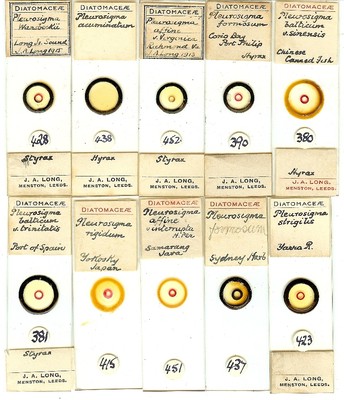 DIATOMACEÆ
Pleurosigma
Long Is. Sound
DIATOMACEÆ
Pleurosigma
acuminatum
DIATOMACEÆ
Pleurosigma
affine
v. Virginica
Richmond Va
DIATOMACEÆ
Pleurosigma
formosum
Corio Bay
Port Philip
Hyrax
DIATOMACEÆ
Pleurosigma
balticum
v. sinensis
Chinese
Canned Fish
428
438
452
390
380
Styrax
J. A. LONG,
MENSTON, LEEDS.
Hyrax
J. A. LONG,
MENSTON, LEEDS.
Styrax
J. A. LONG,
MENSTON, LEEDS.
Hyrax
J. A. LONG,
MENSTON, LEEDS.
DIATOMACEÆ
Pleurosigma
balticum
v. trinitatis
Port of Spain
DIATOMACEÆ
Pleurosigma
rigidum
Japan
DIATOMACEÆ
Pleurosigma
affine
v interrupta
H. Per
Samarang
Java
DIATOMACEÆ
Pleurosigma
formosum
Sydney Harb
DIATOMACEÆ
Pleurosigma
strigilis
Yarra R.
381
415
451
437
423
Styrax
J. A. LONG,
MENSTON, LEEDS.
J. A. LONG,
MENSTON, LEEDS.